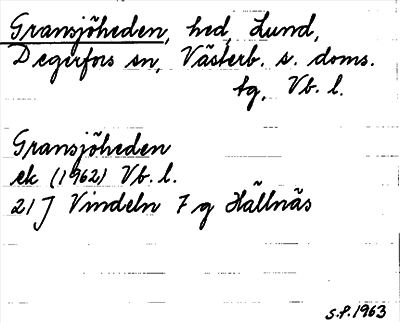 Gransjöheden, hed, Lund,
Degerfors sn, Västerb. s. doms.
tg, Vb. l.
Gransjöheden
ek (1962) Vb. l.
21 J Vindeln 7 g Hällnäs
S.P. 1963